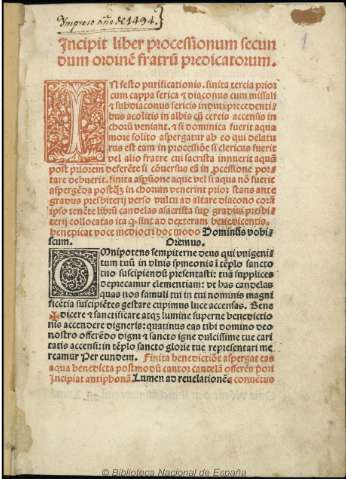 Impreso año de 1494.
Incipit liber processionum secun
dum ordinē fratrū predicatorum.
IN festo purificationis. finita tercia prior
cum cappa serica ⁊ diaconus cum missali
⁊ subdiaconus sericis induti precedenti
bus acolitis in albis cū cereis accensis in
chorū veniant. ⁊ si dominica fuerit aqua
more solito aspergatur ab eo qui delatu
rus est eam in processiōe si clericus fuerit
vel alio fratre cui sacrista innuerit aquā
post priorem deferēte si cōuersus eā in processione por
tare debuerit. finita aspsione aque vel si aqua nō fuerit
aspergēda postq̄ in chorum venerint prior stans ante
gradus presbiterij verso vultu ad altare diacono corā
ipso tenēte librū candelas a sacrista sup gradus presbi
terij collocatas ita q sint ad dexteram benedicentis.
benedicat voce mediocri hoc modo Dominus vobis
cum. Oremus.
OMnipotens sempiterne deus qui vnigeni
tum tuū in vlnis symeonis ī tēplo sancto
tuo suscipiendū presentasti: tuā supplices
deprecamur clementiam: vt has candelas
quas nos famuli tui in tui nominis magni
ficētia suscipiētes gestare cupimus luce accensas. Bene
✠dicere ⁊ sanctificare atqȝ lumine superne benedictio
nis accendere digneris: quatinus eas tibi domino deo
nostro offerēdo digni ⁊ sancto igne dulcissime tue cari
tatis accensi: in tēplo sancto glorie tue representari me
reamur Per eundem. Finita benedictiōe aspergat eas
aqua benedicta postmodū cantor candelā offerēs pori
Incipiat antiphonā Lumen ad reuelationē: conuētus
© Biblioteca Nacional de España